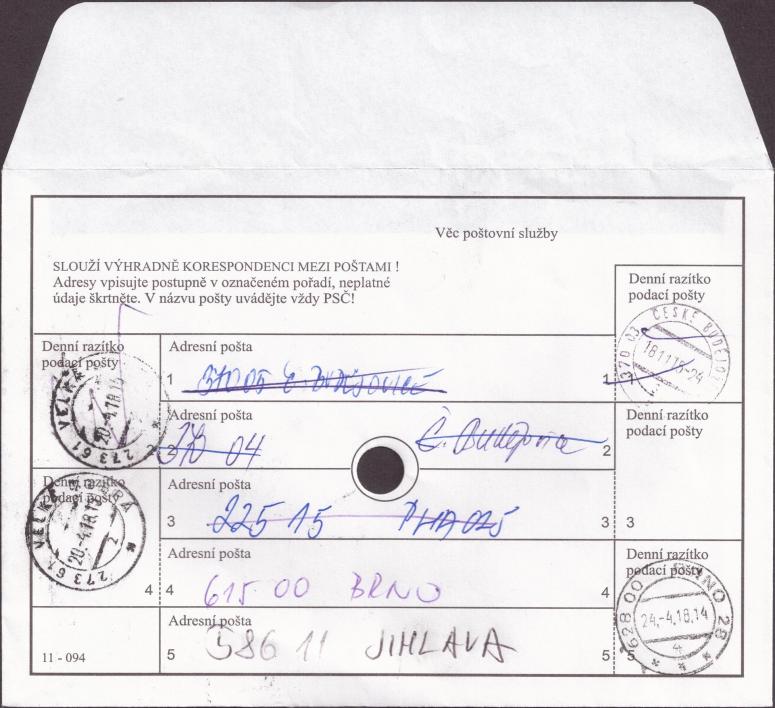 Věc poštovní služby
SLOUŽÍ VÝHRADNĚ KORESPONDENCI MEZI POŠTAMI !
Adresy vpisujte postupně v označeném pořadí, neplatné
údaje škrtněte. V názvu pošty uvádějte vždy PSČ!
Denní razítko
podací pošty
370 03 ČESKÉ BUDĚJOVICE
18.11.18-24
1
Denní razítko
podací pošty
Adresní pošta
1 37005 Č. BUDĚJOVICE
VELKÁ DOBRÁ
20.-4.18.14
273 61
2
Adresní pošta
2 370 04 Č. Budějovice 2
Denní razítko
podací pošty
3
Denní razítko
podací pošty
VELKÁ DOBRÁ
20.-4.18.14
273 61
2
4
Adresní pošta
3 225 15 PHA 025 3
Adresní pošta
4 615 00 BRNO 4
Denní razítko
podací pošty
628 00 BRNO 28
24.-4.18.14
4
5
Adresní pošta
5 586 11 JIHLAVA 5
11 - 094